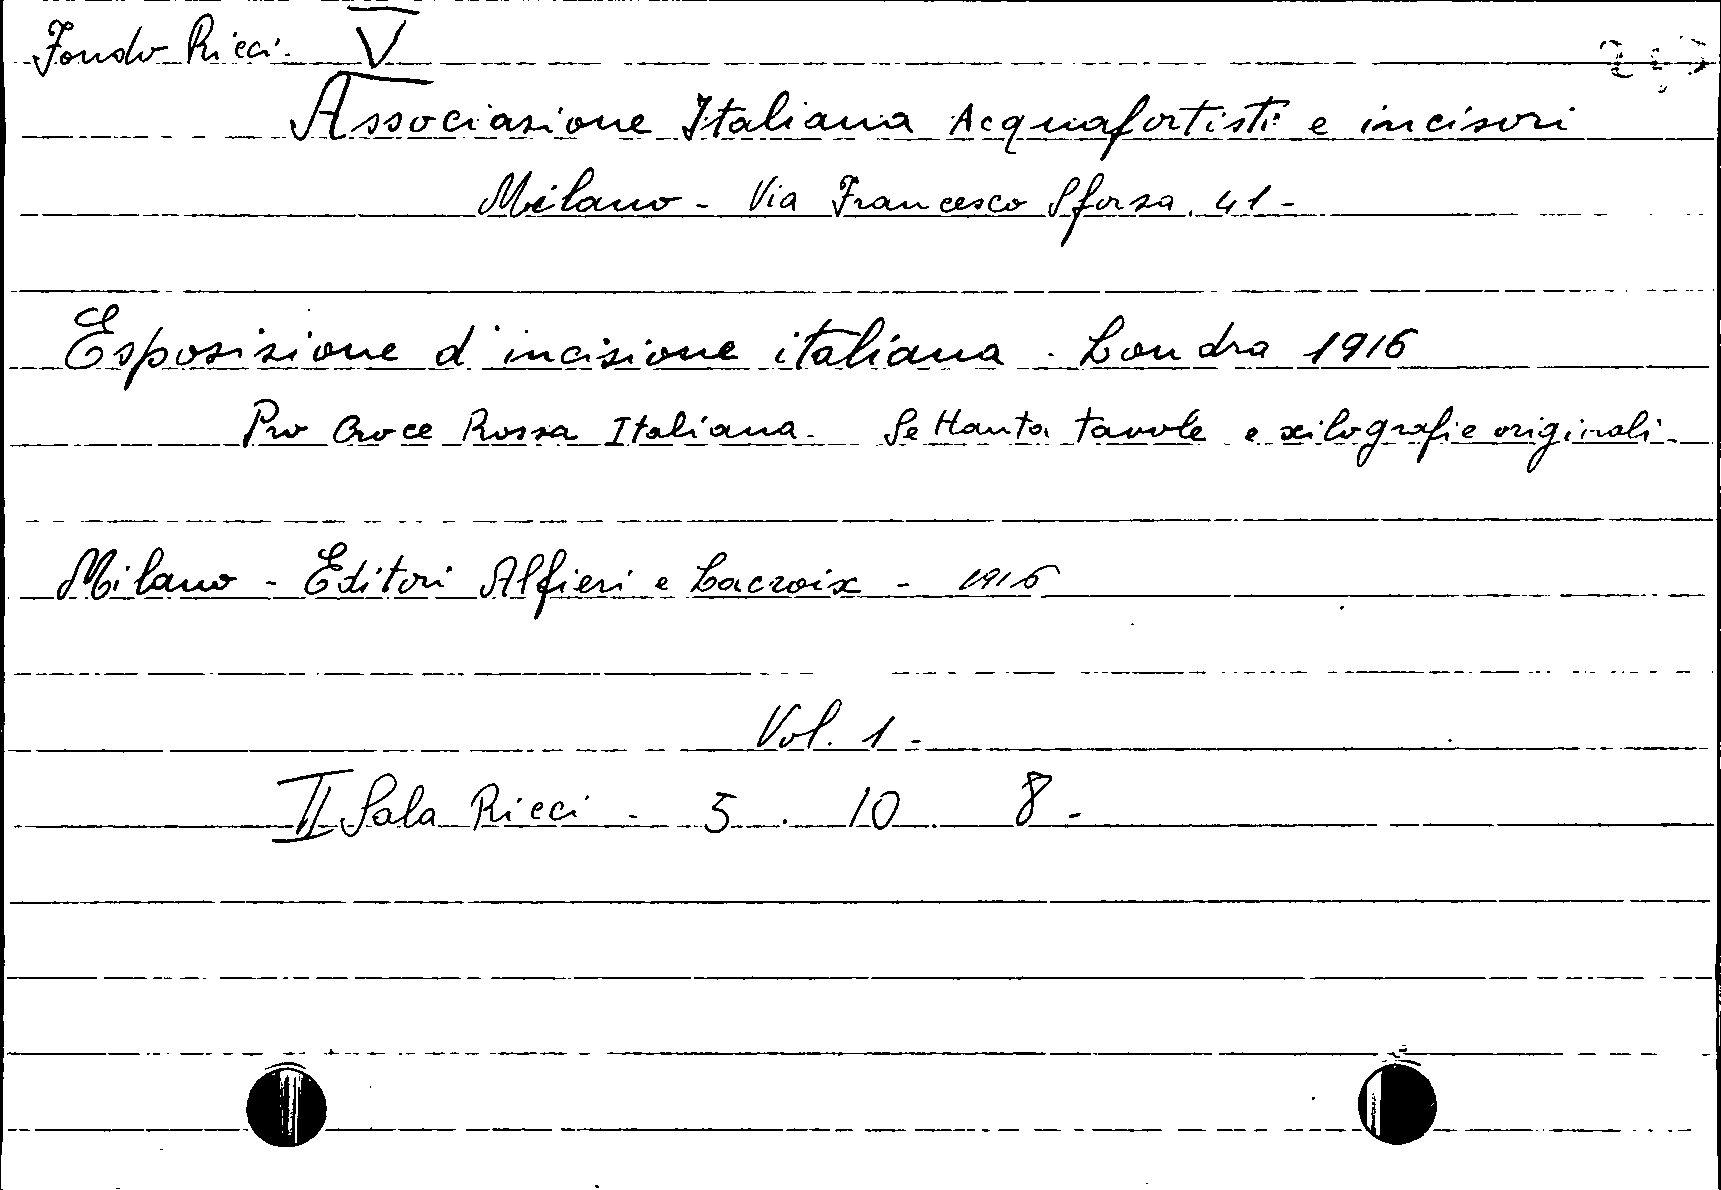 Fondo Ricci. V
Associazione Italiana Acquafortisti e incisori
Milano - Via Francesco Sforza. 41 -
Esposizione d'incisione italiana. Londra 1916
Pro Croce Rossa Italiana. Settanta tavole e xilografie originali.
Milano - Editori Alfieri e Lacroix - 1916
Vol. 1 -
II Sala Ricci - 5. 10. 8 -